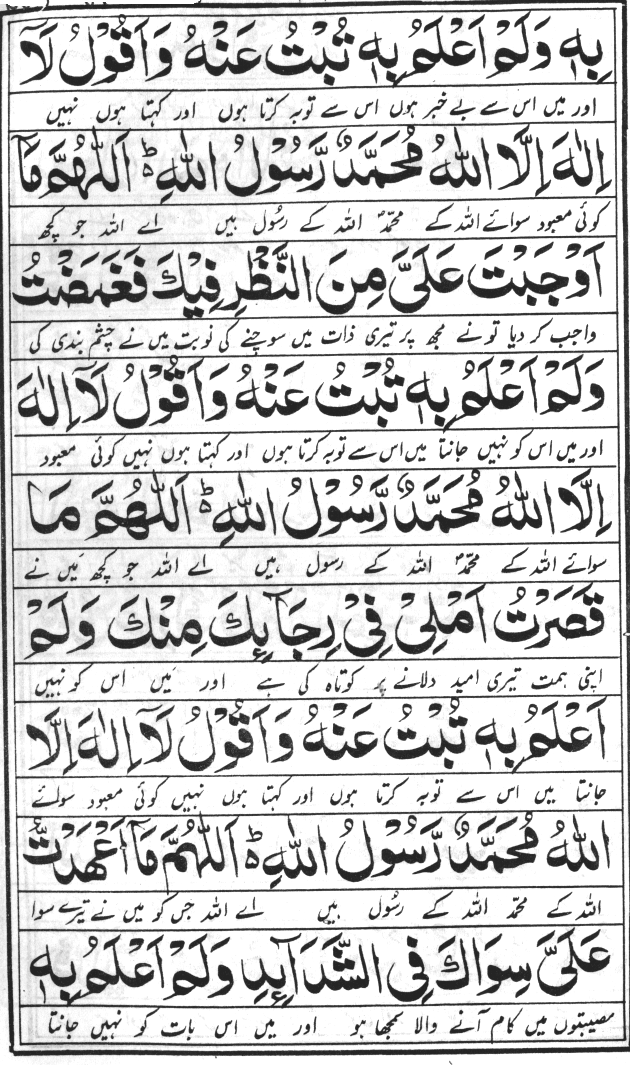 بِهٖ وَلَمْ اَعْلَمُ بِهٖ تُبْتُ عَنْهُ وَاَقُوْلُ لَآ
اور میں اس سے بے خبر ہوں اس سے توبہ کرتا ہوں اور کہتا ہوں نہیں
اِلٰهَ اِلَّا اللّٰهُ مُحَمَّدٌ رَّسُوْلُ اللّٰهِ ؕ اَللّٰهُمَّ مَآ
کوئی معبود سوائے اللہ کے محمدؐ اللہ کے رسُول ہیں اے اللہ جو کچھ
اَوْجَبْتَ عَلَىَّ مِنَ النَّظْرِ فِيْكَ فَغَمَضْتُ
واجب کر دیا تونے مجھ پر تیری ذات میں سوچنے کی نوبت میں نے چشم بندی کی
وَلَمْ اَعْلَمُ بِهٖ تُبْتُ عَنْهُ وَاَقُوْلُ لَآ اِلٰهَ
اور میں اس کو نہیں جانتا میں اس سے توبہ کرتا ہوں اور کہتا ہوں نہیں کوئی معبود
اِلَّا اللّٰهُ مُحَمَّدٌ رَّسُوْلُ اللّٰهِ ؕ اَللّٰهُمَّ مَا
سوائے اللہ کے محمدؐ اللہ کے رسول ہیں اے اللہ جو کچھ مَیں نے
قَصَرْتُ اَمْلِىْ فِىْ رِجَآىِٕكَ مِنْكَ وَلَمْ
اپنی ہمت تیری امید دلانے پر کوتاہ کی ہے اور مَیں اس کو نہیں
اَعْلَمُ بِهٖ تُبْتُ عَنْهُ وَاَقُوْلُ لَآ اِلٰهَ اِلَّا
جانتا میں اس سے توبہ کرتا ہوں اور کہتا ہوں نہیں کوئی معبود سوائے
اللّٰهُ مُحَمَّدٌ رَّسُوْلُ اللّٰهِ ؕ اَللّٰهُمَّ مَآ اَعْهَدْتُّ
اللہ کے محمد اللہ کے رسُول ہیں اے اللہ جس کو میں نے تیرے سوا
عَلَىَّ سِوَاكَ فِى الشَّدَآىِٕدِ وَلَمْ اَعْلَمُ بِهٖ
مصیبتوں میں کام آنے والا سمجھا ہو اور میں اس بات کو نہیں جانتا